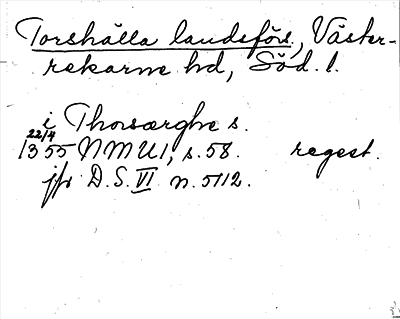 Torshälla landsförs., Väster-
rekarne hd, Söd. l.
i Thorsærghe s.
22/4
1355 NMU1, s. 58. regest.
jfr D.S. VI n. 5112.